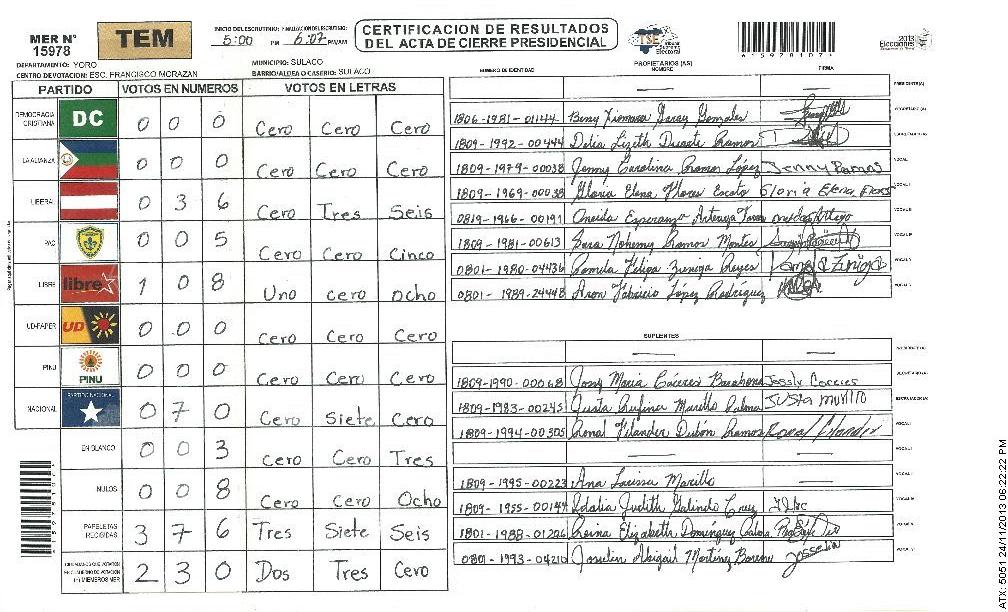 MER N° 15978
TEM
INICIO DEL ESCRUTINIO: 5:00 PM FINALIZACION DEL ESCRUTINIO: 6:07 PM/AM
CERTIFICACION DE RESULTADOS
DEL ACTA DE CIERRE PRESIDENCIAL
TSE
Tribunal Supremo Electoral
2013
Elecciones
4159781071
DEPARTAMENTO: YORO
MUNICIPIO: SULACO
CENTRO DE VOTACION: ESC. FRANCISCO MORAZAN
BARRIO/ALDEA O CASERIO: SULACO
PARTIDO VOTOS EN NUMEROS VOTOS EN LETRAS
DEMOCRACIA CRISTIANA DC 0 0 0 Cero Cero Cero
LA ALIANZA 0 0 0 Cero Cero Cero
LIBERAL 0 3 6 Cero Tres Seis
PAC 0 0 5 Cero Cero Cinco
LIBRE libre 1 0 8 Uno cero ocho
UD-FAPER UD 0 0 0 Cero Cero Cero
PINU PINU 0 0 0 Cero Cero Cero
NACIONAL PARTIDO NACIONAL 0 7 0 Cero Siete Cero
EN BLANCO 0 0 3 Cero Cero Tres
NULOS 0 0 8 Cero Cero Ocho
PAPELETAS RECIBIDAS 3 7 6 Tres Siete Seis
CIUDADANOS QUE VOTARON EN CUADERNO DE VOTACION (+) MIEMBROS MER 2 3 0 Dos Tres Cero
PROPIETARIOS (AS)
NUMERO DE IDENTIDAD NOMBRE FIRMA
— — PRESIDENTE(A)
1806-1981-01144 Beny Xiomara Garay Gonzales SECRETARIO (A)
1809-1992-00444 Delia Lizeth Duarte Ramos ESCRUTADOR (A)
1809-1979-00038 Jenny Carolina Ramos López Jenny Ramos VOCAL
1809-1969-00038 Gloria Elena Flores Escoto Gloria Elena Flores VOCAL
0819-1966-00191 Oneida Esperanza Arteaga VOCAL
1809-1981-00613 Sara Nohemy Ramos Montes VOCAL
0801-1980-04436 Pamela Felipa Zuniga Reyes VOCAL
0801-1989-24448 Aron Fabricio López Rodríguez VOCAL
SUPLENTES
— — PRESIDENTE (A)
1809-1990-00068 Jossy Maria Cáceres Barahona Jossly Caceres SECRETARIO (A)
1809-1983-00245 Justa Rufina Murillo Palma Justa Murillo ESCRUTADOR (A)
1809-1994-00305 Ronal Filander Dubón Ramos VOCAL
— — VOCAL
1809-1995-00223 Ana Larissa Murillo VOCAL
1809-1955-00144 Idalia Judith Galindo Cruz VOCAL
1801-1988-01226 Reina Elizabeth Domínguez VOCAL
0801-1993-04210 Josselin Abigail Martínez Josselin VOCAL
ATX: 5051 24/11/2013 06:22:22 PM